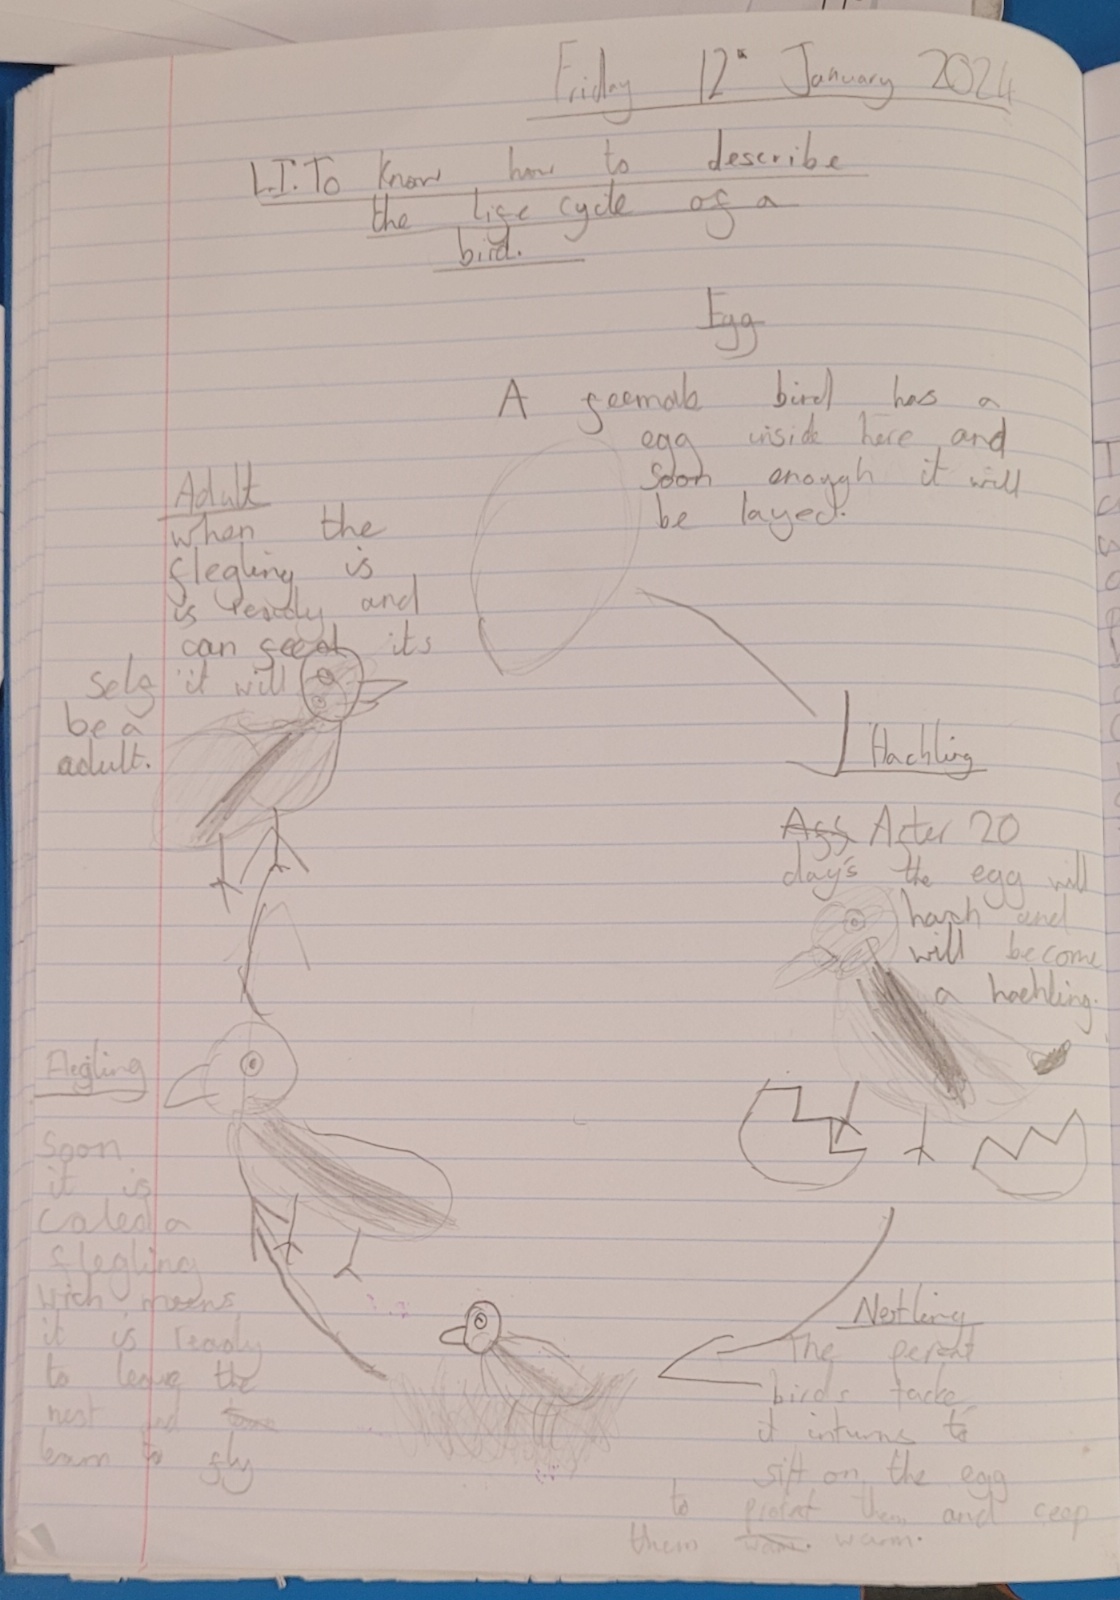 Friday 12th January 2024
L.I. To know how to describe
the life cycle of a
bird.
Egg
A feemale bird has a
egg inside here and
soon enough it will
be layed.
Adult
when the
flegling is
is ready and
can feed its
self it will
be a
adult.
Hachling
Aff After 20
day's the egg will
hach and
will become
a hachling.
Nestling
The perent
birds tacke
it inturns to
sitt on the egg
to protat them and ceep
them warm. warm.
Flegling
Soon
it is
caled a
flegling
wich meens
it is ready
to leave the
nest and
learn to fly